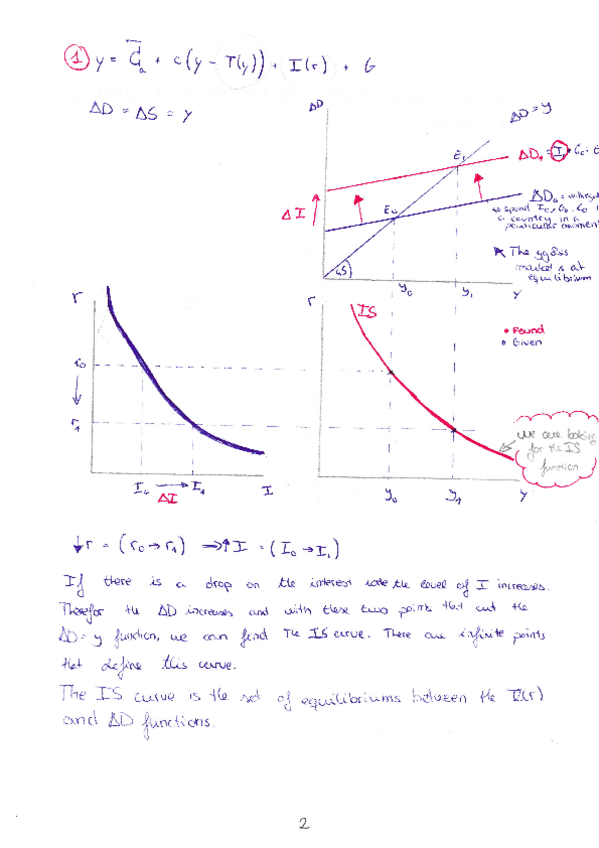 1 y = C̄a + c(y - T(y)) + I(r) + G
AD = AS = y
AD
AD = y
E1
AD1 = I1
ΔI
E0
AD0
a country in a
45
The gg&ss
market is at
equilibrium
y0 y1 y
r
r0
r1
I0 → I1 I
ΔI
r
IS
• Found
• Given
we are looking
for the IS
function
y0 y1 y
↓r = (r0 → r1) → ↑I = (I0 → I1)
If there is a drop on the interest rate the level of I increases.
Therefor the AD increases and with these two points that cut the
AD = y function, we can find The IS curve. There are infinite points
that define this curve.
The IS curve is the set of equilibriums between the I(r)
and AD functions.
2